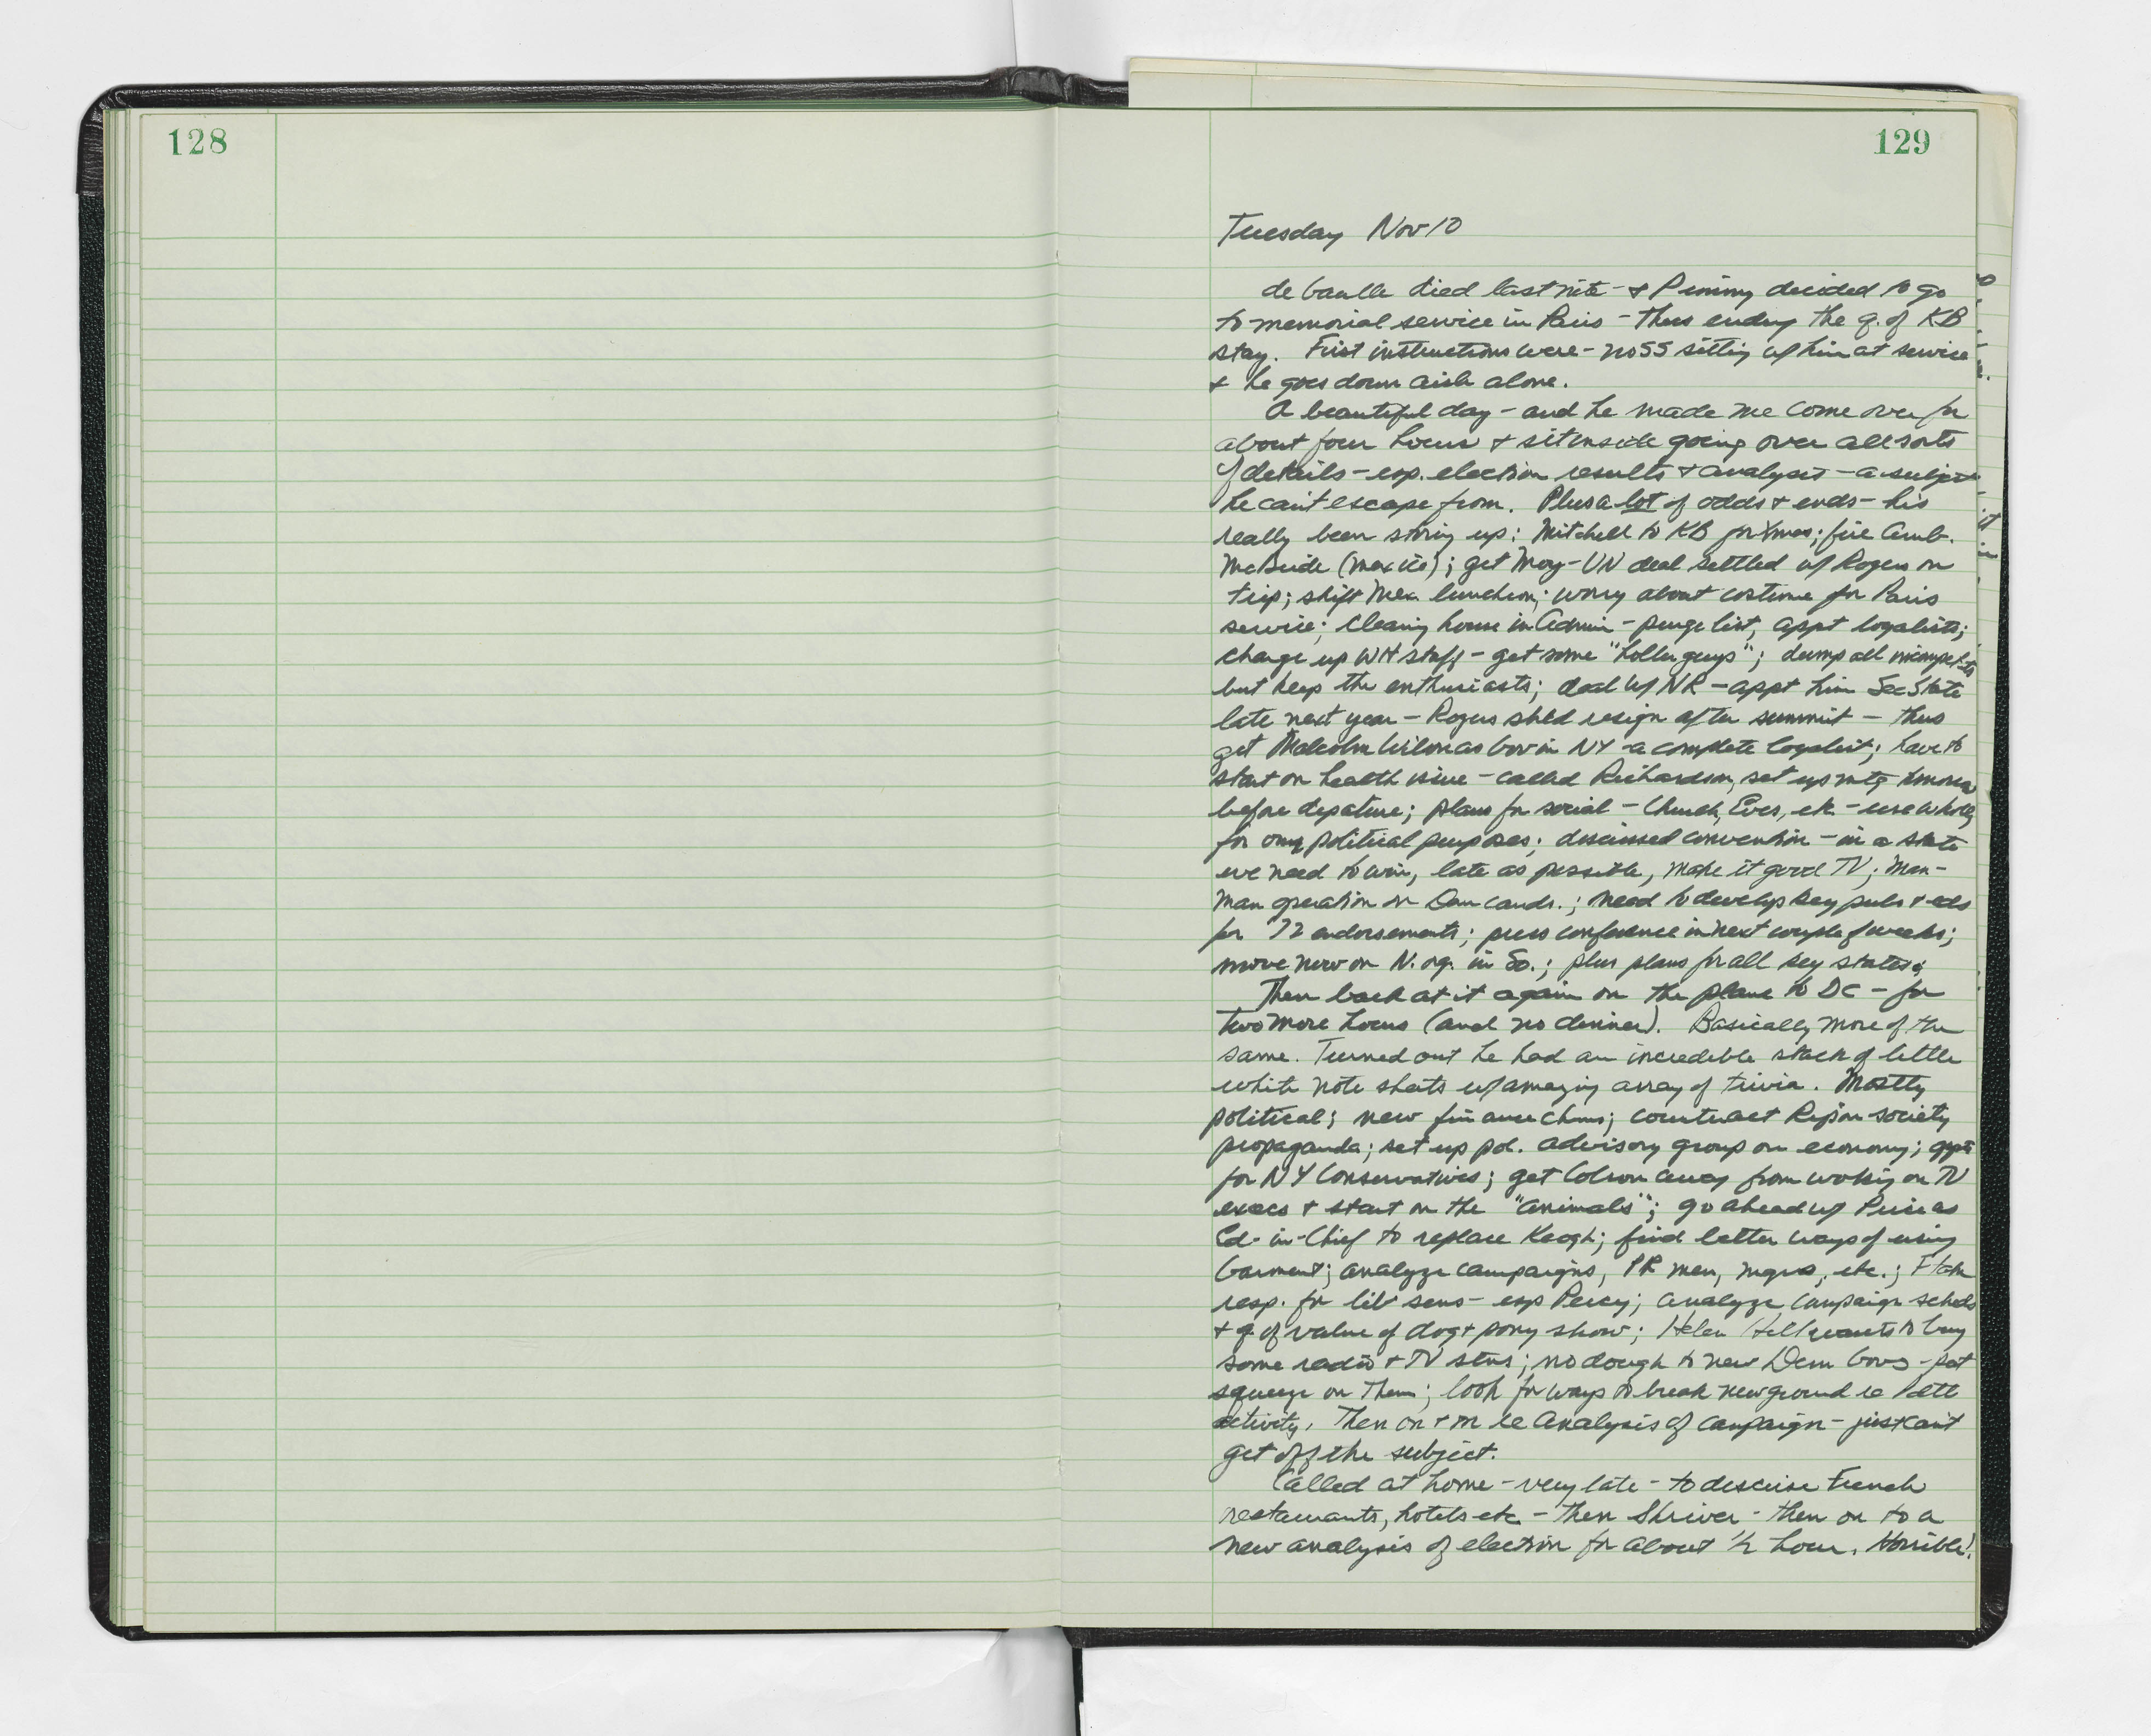 128
129
Tuesday Nov 10
de Gaulle died last nite - & P immy decided to go
to memorial service in Paris - thus ending the q. of KB
stay. First instructions were - no SS sitting w/ him at service
& he goes down aisle alone.
A beautiful day - and he made me come over for
about four hours & sit inside going over all sorts
of details - esp. election results & analysis - a subject
he can't escape from. Plus a lot of odds & ends - his
really been storing up: Mitchell to KB for Xmas; fire Amb.
McBride (Mexico); get Moy-UN deal settled w/ Rogers on
trip; shift Mex. luncheon; worry about costume for Paris
service; cleaning house in Admin - purge list, appt loyalists;
change up WH staff - get some "holler guys"; dump all incompetents
but keep the enthusiasts; deal w/ NR - appt him Sec State
late next year - Rogers shld resign after summit - thus
get Malcolm Wilson as Gov in NY - a complete loyalist; have to
start on health issue - called Richardson, set up mtg tomorrow
before departure; plans for social - Church, Eves, etc - use wholly
for our political purposes; discussed convention - in a state
we need to win, late as possible, make it good TV; man-
man operation on Dem cands.; need to develop key pubs & eds
for 72 endorsements; press conference in next couple of weeks;
move now on N. org. in So.; plus plans for all key states;
Then back at it again on the plane to DC - for
two more hours (and no dinner). Basically more of the
same. Turned out he had an incredible stack of little
white note sheets w/ amazing array of trivia. Mostly
political; new finance chmn; counteract Ripon society
propaganda; set up pol. advisory group on economy; appts
for NY Conservatives; get Colson away from working on TV
execs & start on the "animals"; go ahead w/ Price as
Ed-in-Chief to replace Keogh; find better ways of using
Garment; analyze campaigns, PR men, mgrs, etc.; F take
resp. for lib sens - esp Percy; analyze campaign scheds
& q of value of dog & pony show; Helen wants to buy
some radio & TV stns; no dough to new Dem Govs - put
squeeze on them; look for ways to break new ground re
activity. Then on & on re analysis of campaign - just can't
get off the subject.
Called at home - very late - to discuss French
restaurants, hotels etc - then Shriver - then on to a
new analysis of election for about ½ hour. Horrible!